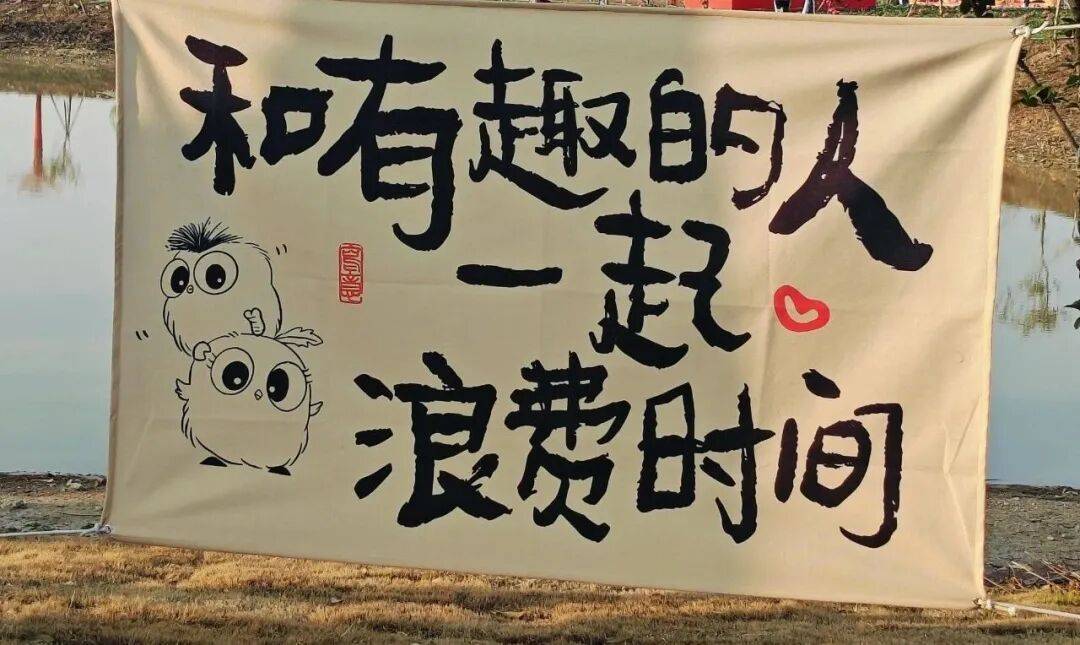 和有趣的人
一起
浪费时间